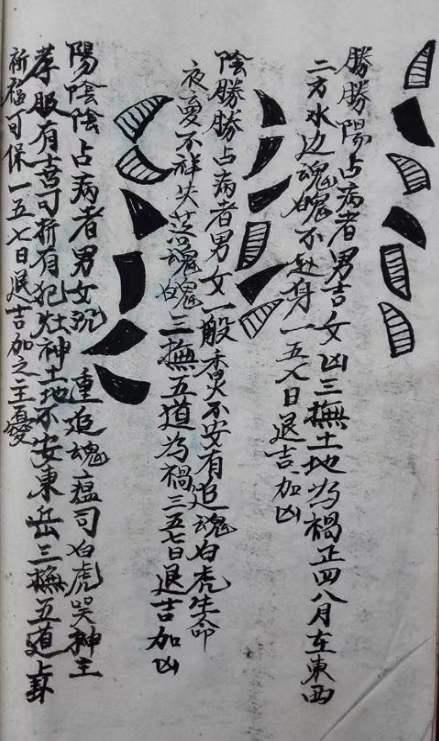 勝勝陽占病者男吉女凶三撫土地為禍正四八月在東西
二方水边魂魄不赴身一五七日退吉加凶
陰勝勝占病者男女一般香火不安有追魂白虎生命
夜夢不祥失落魂魄三撫五道為禍三五七日退吉加凶
陽陰陰占病者男女沉重追魂瘟司白虎哭神主
孝服有喜可祈有犯灶神土地不安東岳三撫五道上卦
祈福可保一五七日退吉加之主憂